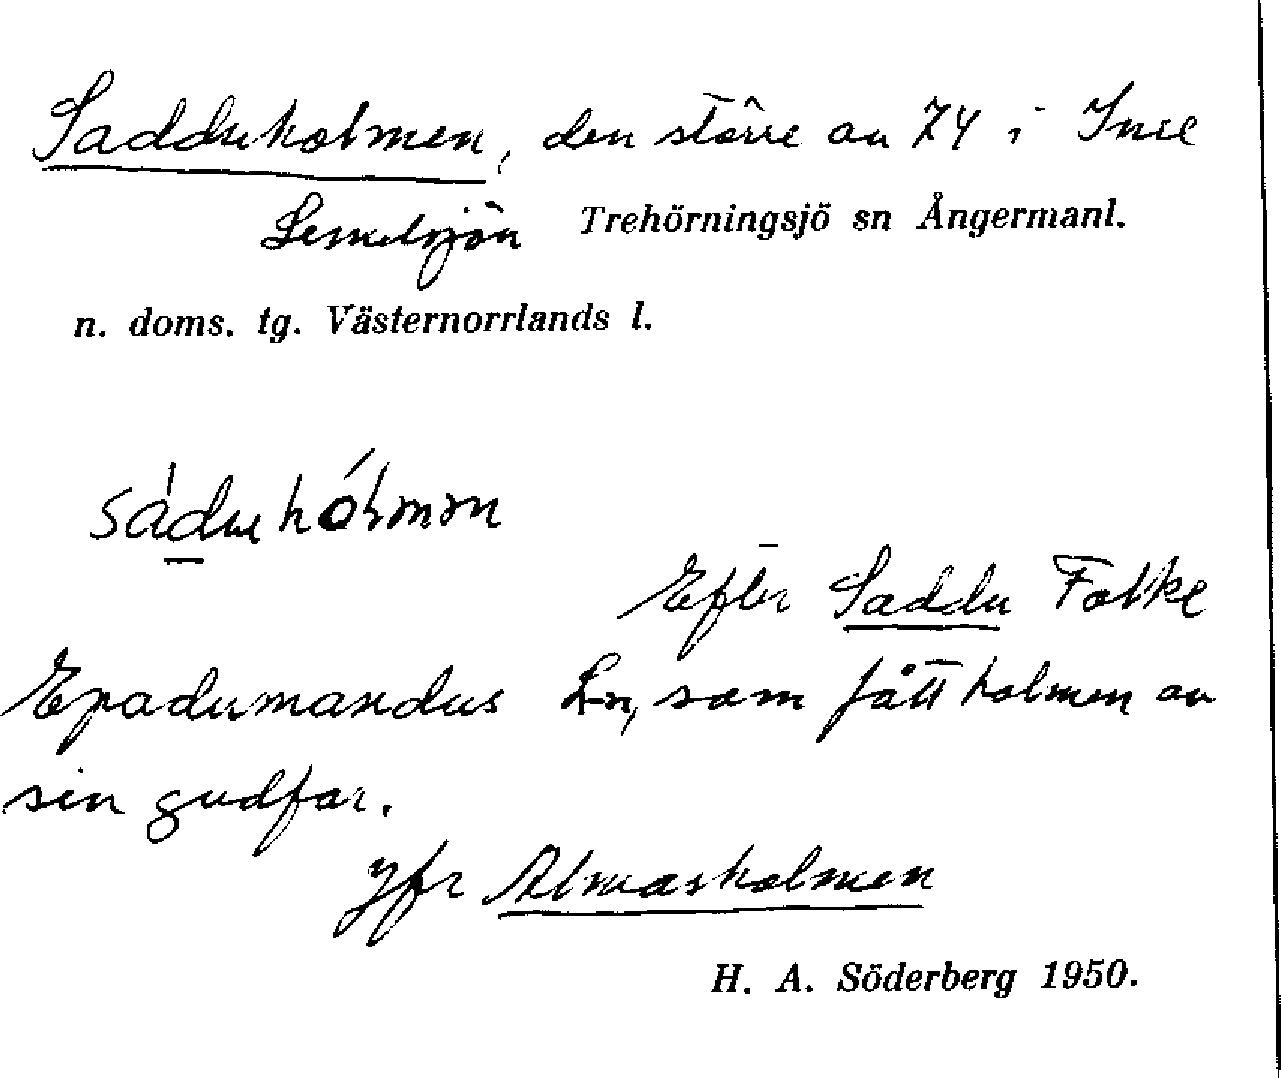 Sadduholmen, den större av 2 i Inre
Lemelsjön Trehörningsjö sn Ångermanl.
n. doms. tg. Västernorrlands l.
Efter Saddu Folke
Epadumandus Ln, som fått holmen av
sin gudfar.
Jfr Almasholmen
H. A. Söderberg 1950.